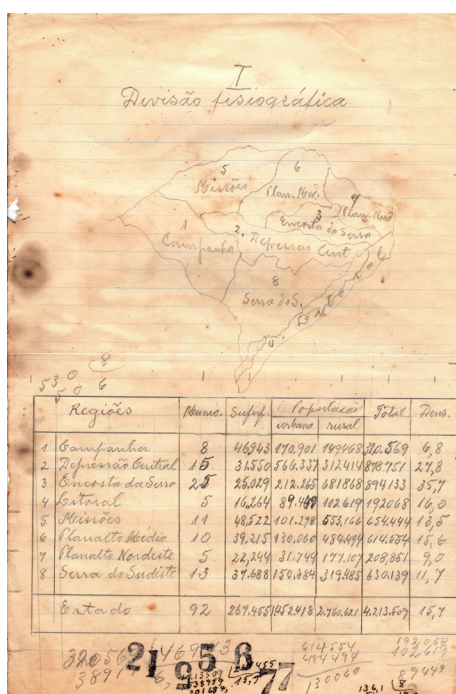 I
Divisão fisiográfica
5
Missões
6
Plan. Med.
7
Plan. Nord
3
Encosta da Serra
1
Campanha
2. Depressão Cent.
8
Serra do S.
4. Litoral
530 8
0 6
Regiões Munic. Superf. População Total Dens.
urbana rural
1 Campanha 8 46943 170,901 149468 320.569 6,8
2 Depressão Central 15 31.550 566.337 312414 878751 27,8
3 Encosta da Serra 25 25.029 212.265 681868 894133 35,7
4 Litoral 5 16,264 89.449 102619 192068 16,0
5 Missões 11 48,522 101.278 553,166 654.444 13,5
6 Planalto Médio 10 39,215 130,060 484,494 614.554 15,6
7 Planalto Nordeste 5 22,244 31.749 177,107 208,851 9,0
8 Serra do Sudeste 13 37.688 150,384 319,485 630,139 11,7
Estado 92 267.455 1452.418 2.760.621 4.213.509 15,7
614554 192068
484494 102619
130060 89449
3891